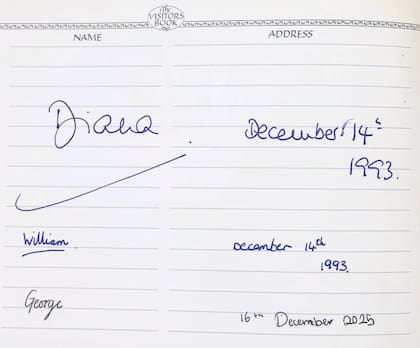 The
VISITORS
BOOK
NAME ADDRESS
Diana December 14th
1993.
William. December 14th
1993.
George 16th December 2025